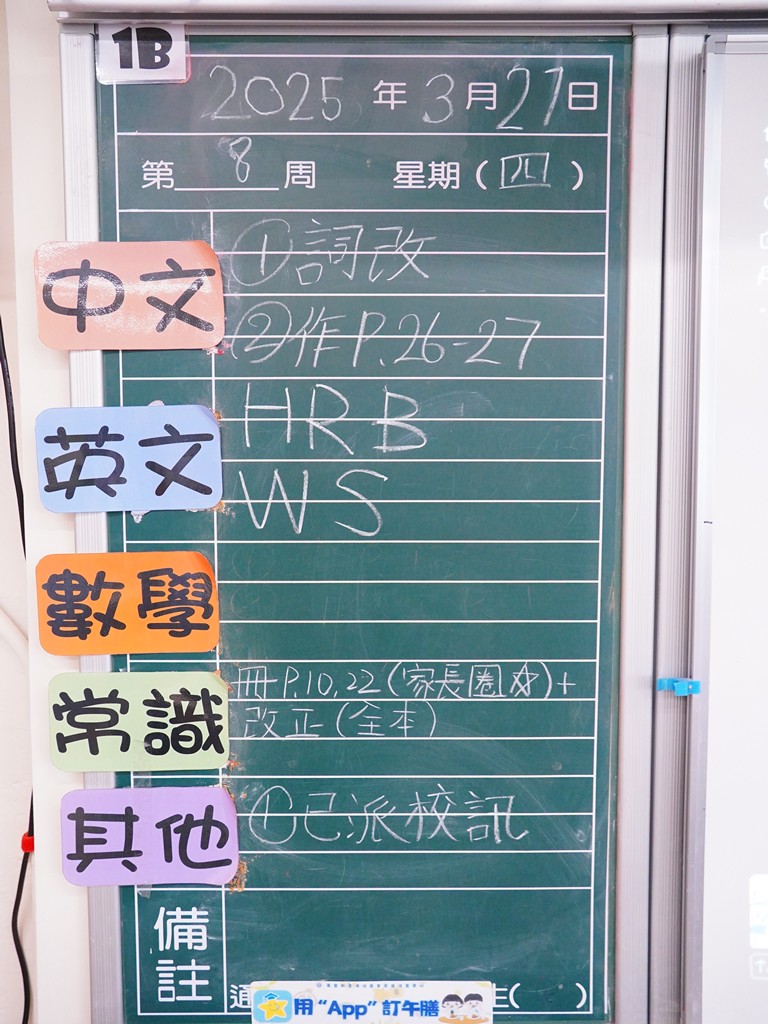 1B
2025 年 3 月 27 日
第 8 周 星期（四）
中文 ①詞改
②作P.26-27
英文 HRB
WS
數學
常識 冊P.10,22(家長圈☆)+
改正(全本)
其他 ①已派校訊
備註
通 生( )
用 “App” 訂午膳